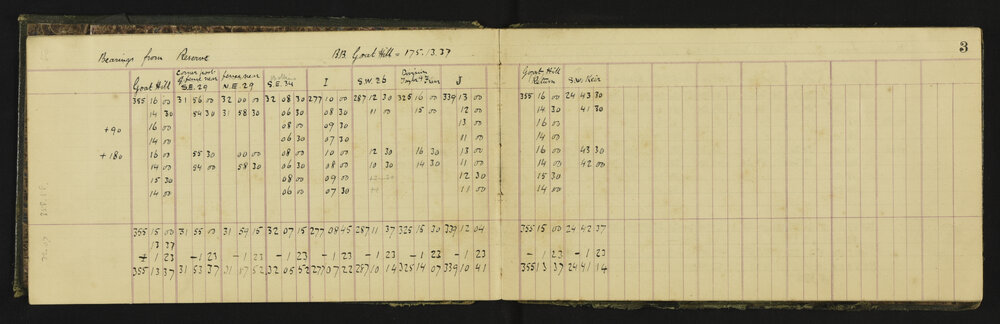 3
Bearings from Reserve BB Goat Hill = 175.13.37
Goat Hill Corner post of fence near S.E. 29 fence near N.E. 29 S.E. 34 I S.W. 26 J Goat Hill Return S.W. Keir
355 16 00 31 56 00 32 00 00 32 08 30 277 10 00 287 12 30 325 16 00 339 13 00 355 16 00 24 43 30
14 30 54 30 31 58 30 06 30 08 30 11 00 15 00 12 00 14 30 41 30
+90 16 00 08 00 09 30 13 00 16 00
14 00 06 30 07 30 11 00 14 00
+180 16 00 55 30 00 00 08 00 10 00 12 30 16 30 13 00 16 00 43 30
14 00 54 00 58 30 06 30 08 00 10 30 14 30 11 00 14 00 42 00
15 30 08 00 09 00 12 30 15 30
14 00 06 00 07 30 11 00 14 00
355 15 00 31 55 00 31 59 15 32 07 15 277 08 45 287 11 37 325 15 30 339 12 04 355 15 00 24 42 37
13 37
- 1 23 - 1 23 - 1 23 - 1 23 - 1 23 - 1 23 - 1 23 - 1 23 - 1 23 - 1 23
355 13 37 31 53 37 31 57 52 32 05 52 277 07 22 287 10 14 325 14 07 339 10 41 355 13 37 24 41 14